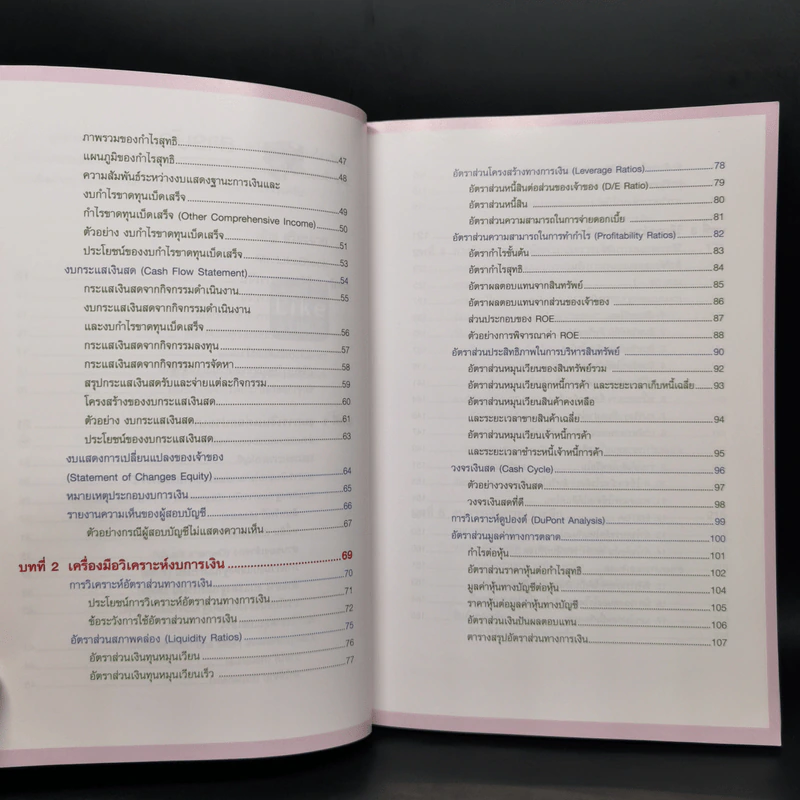 ภาพรวมของกำไรสุทธิ....................47
แผนภูมิของกำไรสุทธิ....................48
ความสัมพันธ์ระหว่างงบแสดงฐานะการเงินและ
งบกำไรขาดทุนเบ็ดเสร็จ....................49
กำไรขาดทุนเบ็ดเสร็จ (Other Comprehensive Income)....................50
ตัวอย่าง งบกำไรขาดทุนเบ็ดเสร็จ....................51
ประโยชน์ของงบกำไรขาดทุนเบ็ดเสร็จ....................53
งบกระแสเงินสด (Cash Flow Statement)....................54
กระแสเงินสดจากกิจกรรมดำเนินงาน....................55
งบกระแสเงินสดจากกิจกรรมดำเนินงาน
และงบกำไรขาดทุนเบ็ดเสร็จ....................56
กระแสเงินสดจากกิจกรรมลงทุน....................57
กระแสเงินสดจากกิจกรรมการจัดหา....................58
สรุปกระแสเงินสดรับและจ่ายแต่ละกิจกรรม....................59
โครงสร้างของงบกระแสเงินสด....................60
ตัวอย่าง งบกระแสเงินสด....................61
ประโยชน์ของงบกระแสเงินสด....................63
งบแสดงการเปลี่ยนแปลงของเจ้าของ
(Statement of Changes Equity)....................64
หมายเหตุประกอบงบการเงิน....................65
รายงานความเห็นของผู้สอบบัญชี....................66
ตัวอย่างกรณีผู้สอบบัญชีไม่แสดงความเห็น....................67
บทที่ 2 เครื่องมือวิเคราะห์งบการเงิน....................69
การวิเคราะห์อัตราส่วนทางการเงิน....................70
ประโยชน์การวิเคราะห์อัตราส่วนทางการเงิน....................71
ข้อระวังการใช้อัตราส่วนทางการเงิน....................72
อัตราส่วนสภาพคล่อง (Liquidity Ratios)....................75
อัตราส่วนเงินทุนหมุนเวียน....................76
อัตราส่วนเงินทุนหมุนเวียนเร็ว....................77
อัตราส่วนโครงสร้างทางการเงิน (Leverage Ratios)....................78
อัตราส่วนหนี้สินต่อส่วนของเจ้าของ (D/E Ratio)....................79
อัตราส่วนหนี้สิน....................80
อัตราส่วนความสามารถในการจ่ายดอกเบี้ย....................81
อัตราส่วนความสามารถในการทำกำไร (Profitability Ratios)....................82
อัตรากำไรขั้นต้น....................83
อัตรากำไรสุทธิ....................84
อัตราผลตอบแทนจากสินทรัพย์....................85
อัตราผลตอบแทนจากส่วนของเจ้าของ....................86
ส่วนประกอบของ ROE....................87
ตัวอย่างการพิจารณาค่า ROE....................88
อัตราส่วนประสิทธิภาพในการบริหารสินทรัพย์....................90
อัตราส่วนหมุนเวียนของสินทรัพย์รวม....................92
อัตราส่วนหมุนเวียนลูกหนี้การค้า และระยะเวลาเก็บหนี้เฉลี่ย....................93
อัตราส่วนหมุนเวียนสินค้าคงเหลือ
และระยะเวลาขายสินค้าเฉลี่ย....................94
อัตราส่วนหมุนเวียนเจ้าหนี้การค้า
และระยะเวลาชำระหนี้เจ้าหนี้การค้า....................95
วงจรเงินสด (Cash Cycle)....................96
ตัวอย่างวงจรเงินสด....................97
วงจรเงินสดที่ดี....................98
การวิเคราะห์ดูปองต์ (DuPont Analysis)....................99
อัตราส่วนมูลค่าทางการตลาด....................100
กำไรต่อหุ้น....................101
อัตราส่วนราคาหุ้นต่อกำไรสุทธิ....................102
มูลค่าหุ้นทางบัญชีต่อหุ้น....................104
ราคาหุ้นต่อมูลค่าหุ้นทางบัญชี....................105
อัตราส่วนเงินปันผลตอบแทน....................106
ตารางสรุปอัตราส่วนทางการเงิน....................107